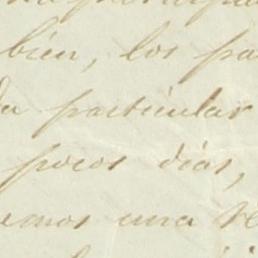 bien, los pa
da particular
pocos dias,
emos una re